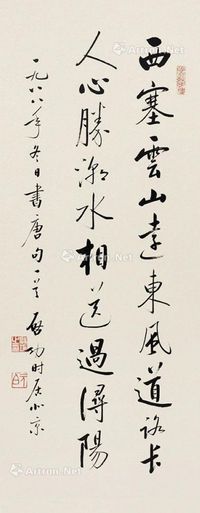 西塞雲山遠東風道路长
人心勝潮水相送過潯陽
一九八八年冬日書唐句一首 啟功时居北京